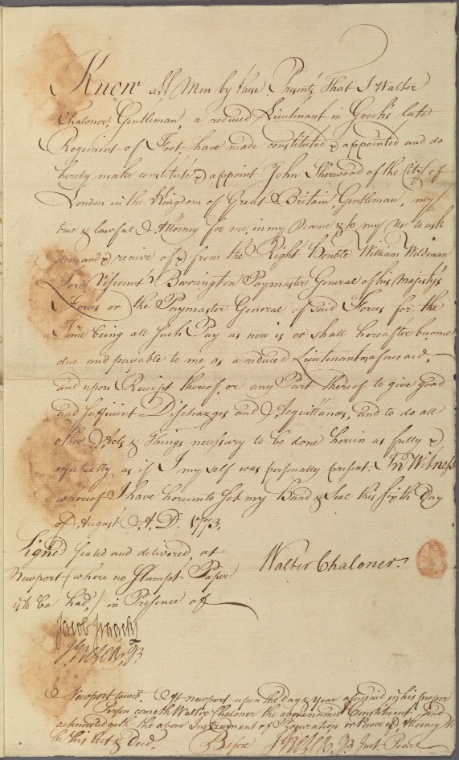 Know All Men by these Presents That I Walter
Chaloner, Gentleman a reduced Lieutenant in late
Regiment of Foot, have made constituted & appointed and do
hereby make constitute & appoint John Sherwood of the City of
London in the Kingdom of Great Britain, Gentleman, my
true & lawful Attorney for me, in my Name & to my Use to ask
demand & receive of & from the Right Honble William Wildman
Lord Viscount Barrington Paymaster General of his Majestys
Forces or the Paymaster General of said Forces for the
Time being all such Pay as now is or shall hereafter become
due and payable to me as a reduced Lieutenant aforesaid,
and upon Receipt thereof, or any Part thereof to give good
and sufficient Discharges and Acquittances, and to do all
other Acts & Things necessary to be done herein as fully &
effectually as if I my self was personally present. In Witness
whereof I have hereunto set my Hand & Seal this sixth Day
of August A. D. 1773.
Signed sealed and delivered, at
Newport (where no Stampt Paper
is to be had,) in Presence of
Walter Chaloner
Jacob Isaacks
Newport At Newport upon the day & year aforesaid in his proper
Person cometh Walter Chaloner the abovenamed Constituent, and
acknowledgeth the above Instrument of Procuration or Power of Attorney to
be his Act & Deed. Before Just. Peace